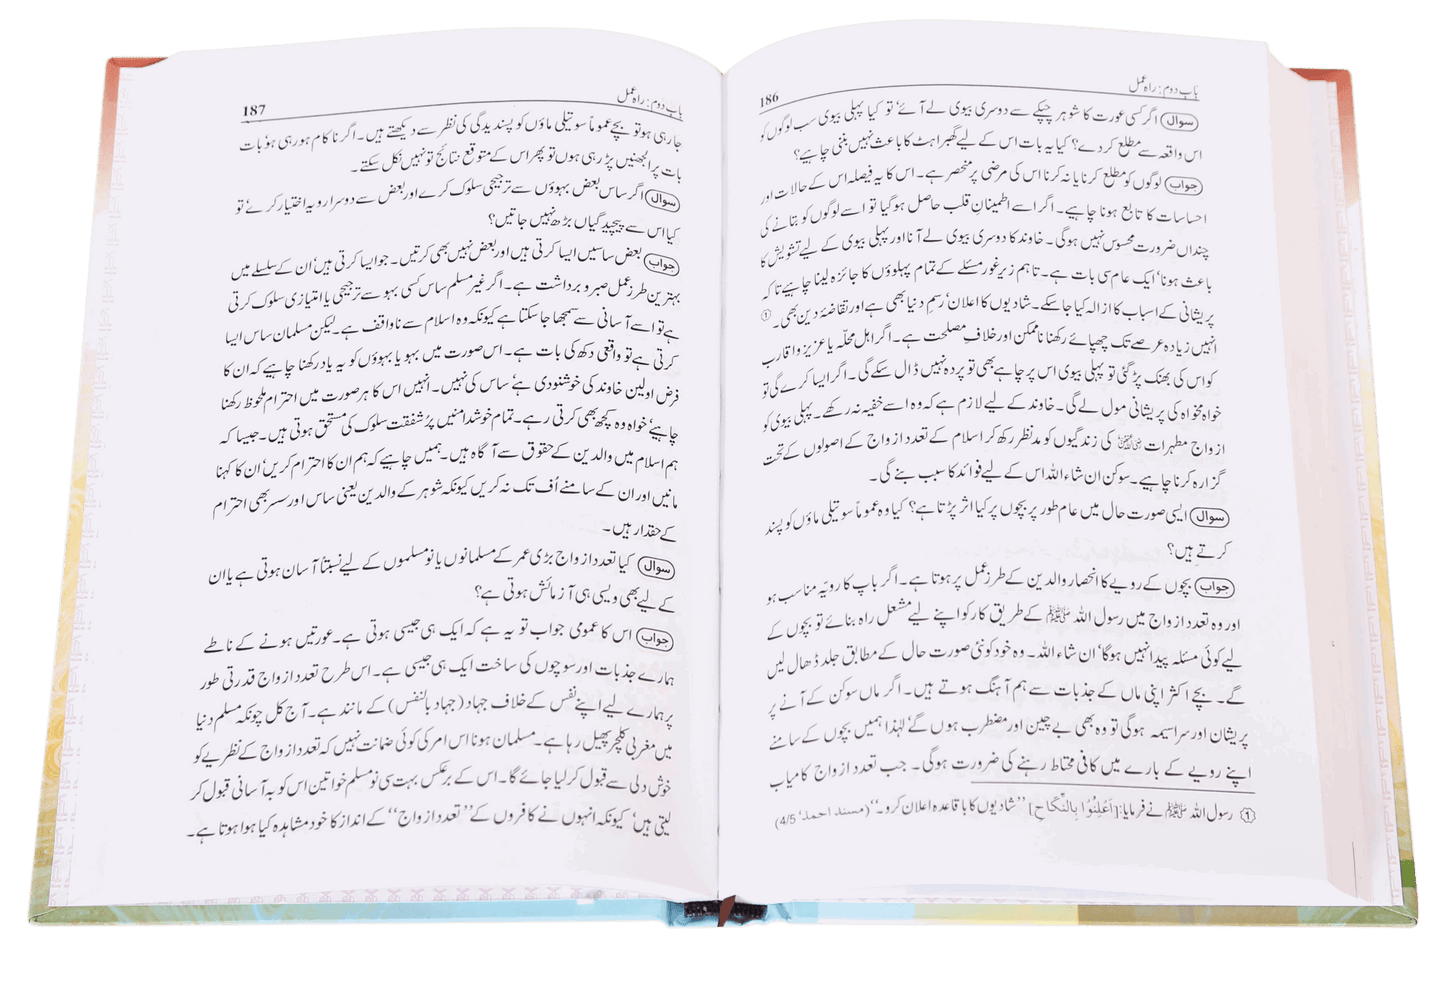 باب دوم: راہ عمل
186
سوال اگر کسی عورت کا شوہر چپکے سے دوسری بیوی لے آئے، تو کیا پہلی بیوی سب لوگوں کو
اس واقعہ سے مطلع کر دے؟ کیا یہ بات اس کے لیے گھبراہٹ کا باعث نہیں بننی چاہیے؟
جواب لوگوں کو مطلع کرنا یا نہ کرنا اس کی مرضی پر منحصر ہے۔ اس کا یہ فیصلہ اس کے حالات اور
احساسات کا تابع ہونا چاہیے۔ اگر اسے اطمینانِ قلب حاصل ہوگیا تو اسے لوگوں کو بتانے کی
چنداں ضرورت محسوس نہیں ہوگی۔ خاوند کا دوسری بیوی لے آنا اور پہلی بیوی کے لیے تشویش کا
باعث ہونا، ایک عام سی بات ہے۔ تاہم زیرِ غور مسئلے کے تمام پہلوؤں کا جائزہ لینا چاہیے تاکہ
پریشانی کے اسباب کا ازالہ کیا جاسکے۔ شادیوں کا اعلان، رسمِ دنیا بھی ہے اور تقاضۂ دین بھی۔ ①
انہیں زیادہ عرصے تک چھپائے رکھنا ناممکن اور خلافِ مصلحت ہے۔ اگر اہل محلّہ یا عزیز و اقارب
کو اس کی بھنک پڑ گئی تو پہلی بیوی اس پر چاہے بھی تو پردہ نہیں ڈال سکے گی۔ اگر ایسا کرے گی تو
خواہ مخواہ کی پریشانی مول لے گی۔ خاوند کے لیے لازم ہے کہ وہ اسے خفیہ نہ رکھے۔ پہلی بیوی کو
ازواج مطہرات کی زندگیوں کو مدنظر رکھ کر اسلام کے تعدد ازواج کے اصولوں کے تحت
گزارہ کرنا چاہیے۔ سوکن ان شاء اللہ اس کے لیے فوائد کا سبب بنے گی۔
سوال ایسی صورت حال میں عام طور پر بچوں پر کیا اثر پڑتا ہے؟ کیا وہ عموماً سوتیلی ماؤں کو پسند
کرتے ہیں؟
جواب بچوں کے رویے کا انحصار والدین کے طرز عمل پر ہوتا ہے۔ اگر باپ کا رویّہ مناسب ہو
اور وہ تعدد ازواج میں رسول اللہ ﷺ کے طریق کار کو اپنے لیے مشعل راہ بنائے تو بچوں کے
لیے کوئی مسئلہ پیدا نہیں ہوگا، ان شاء اللہ۔ وہ خود کو نئی صورت حال کے مطابق جلد ڈھال لیں
گے۔ بچے اکثر اپنی ماں کے جذبات سے ہم آہنگ ہوتے ہیں۔ اگر ماں سوکن کے آنے پر
پریشان اور سراسیمہ ہوگی تو وہ بھی بے چین اور مضطرب ہوں گے، لہٰذا ہمیں بچوں کے سامنے
اپنے رویے کے بارے میں کافی محتاط رہنے کی ضرورت ہوگی۔ جب تعدد ازواج کامیاب
① رسول اللہ ﷺ نے فرمایا: [اَعْلِنُوْا بِالنِّكَاحِ] ’’شادیوں کا باقاعدہ اعلان کرو۔‘‘ (مسند احمد، 4/5)
باب دوم: راہ عمل
187
جارہی ہو تو بچے عموماً سوتیلی ماؤں کو پسندیدگی کی نظر سے دیکھتے ہیں۔ اگر ناکام ہو رہی ہو، بات
بات پر الجھنیں پڑ رہی ہوں تو پھر اس کے متوقع نتائج تو نہیں نکل سکتے۔
سوال اگر ساس بعض بہوؤں سے ترجیحی سلوک کرے اور بعض سے دوسرا رویہ اختیار کرے، تو
کیا اس سے پیچیدگیاں بڑھ نہیں جاتیں؟
جواب بعض ساسیں ایسا کرتی ہیں اور بعض نہیں بھی کرتیں۔ جو ایسا کرتی ہیں، ان کے سلسلے میں
بہترین طرز عمل صبر و برداشت ہے۔ اگر غیر مسلم ساس کسی بہو سے ترجیحی یا امتیازی سلوک کرتی
ہے تو اسے آسانی سے سمجھا جا سکتا ہے کیونکہ وہ اسلام سے ناواقف ہے۔ لیکن مسلمان ساس ایسا
کرتی ہے تو واقعی دکھ کی بات ہے۔ اس صورت میں بہو یا بہوؤں کو یہ یاد رکھنا چاہیے کہ ان کا
فرض اولین خاوند کی خوشنودی ہے، ساس کی نہیں۔ انہیں اس کا ہر صورت میں احترام ملحوظ رکھنا
چاہیے، خواہ وہ کچھ بھی کرتی رہے۔ تمام خوشدامنیں پُر شفقت سلوک کی مستحق ہوتی ہیں۔ جیسا کہ
ہم اسلام میں والدین کے حقوق سے آگاہ ہیں۔ ہمیں چاہیے کہ ہم ان کا احترام کریں، ان کا کہنا
مانیں اور ان کے سامنے اُف تک نہ کریں کیونکہ شوہر کے والدین یعنی ساس اور سسر بھی احترام
کے حقدار ہیں۔
سوال کیا تعدد ازواج بڑی عمر کے مسلمانوں یا نومسلموں کے لیے نسبتاً آسان ہوتی ہے یا ان
کے لیے بھی ویسی ہی آزمائش ہوتی ہے؟
جواب اس کا عمومی جواب تو یہ ہے کہ ایک ہی جیسی ہوتی ہے۔ عورتیں ہونے کے ناطے
ہمارے جذبات اور سوچوں کی ساخت ایک ہی جیسی ہے۔ اس طرح تعدد ازواج قدرتی طور
پر ہمارے لیے اپنے نفس کے خلاف جہاد (جہاد بالنفس) کے مانند ہے۔ آج کل چونکہ مسلم دنیا
میں مغربی کلچر پھیل رہا ہے۔ مسلمان ہونا اس امر کی کوئی ضمانت نہیں کہ تعدد ازواج کے نظریے کو
خوش دلی سے قبول کرلیا جائے گا۔ اس کے برعکس بہت سی نومسلم خواتین اس کو بہ آسانی قبول کر
لیتی ہیں، کیونکہ انہوں نے کافروں کے ’’تعدد ازواج‘‘ کے انداز کا خود مشاہدہ کیا ہوا ہوتا ہے۔